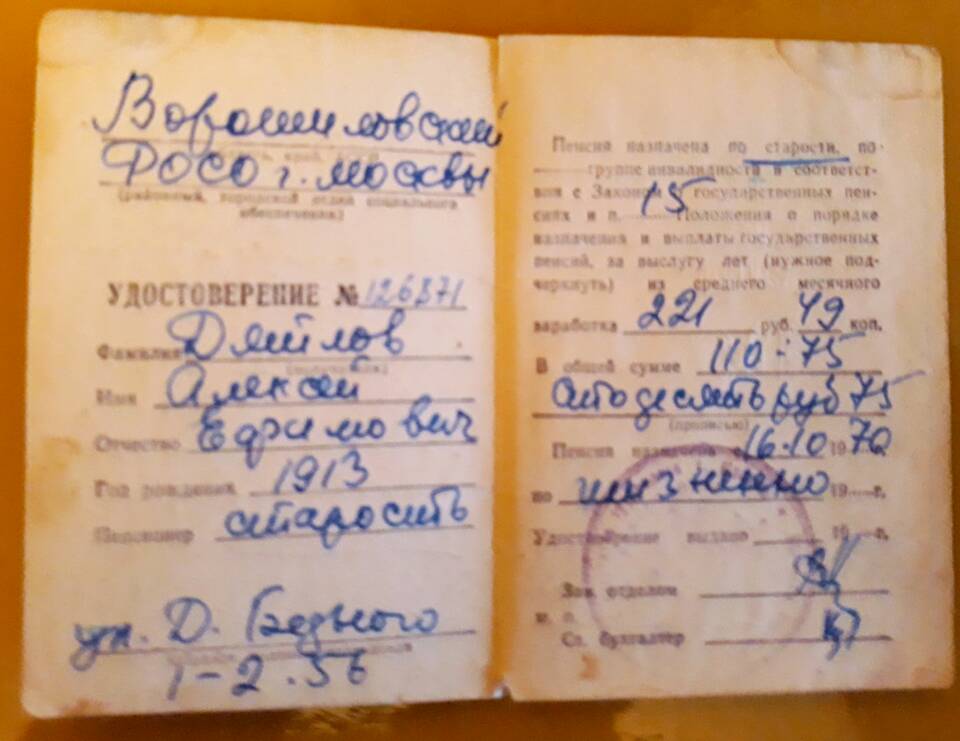 Ворошиловский
РОСО г. Москвы
(районный, городской отдел социального
обеспечения)
УДОСТОВЕРЕНИЕ № 126371
Фамилия Дятлов
Имя Алексей
Отчество Ефимович
Год рождения 1913
Пенсионер старость
ул. Д. Бедного
1-2.56
Пенсия назначена по старости, по
группе инвалидности в соответст-
вии с Законом о государственных пен-
сиях и п. 15 Положения о порядке
назначения и выплаты государственных
пенсий, за выслугу лет (нужное под-
черкнуть) из среднего месячного
заработка 221 руб. 49 коп.
В общей сумме 110-75
стодесять руб 75
(прописью)
Пенсия назначена с 16.10 1970
по жизненно 19 г.
Удостоверение выдано 19 г.
Зав. отделом
м. п.
Ст. бухгалтер